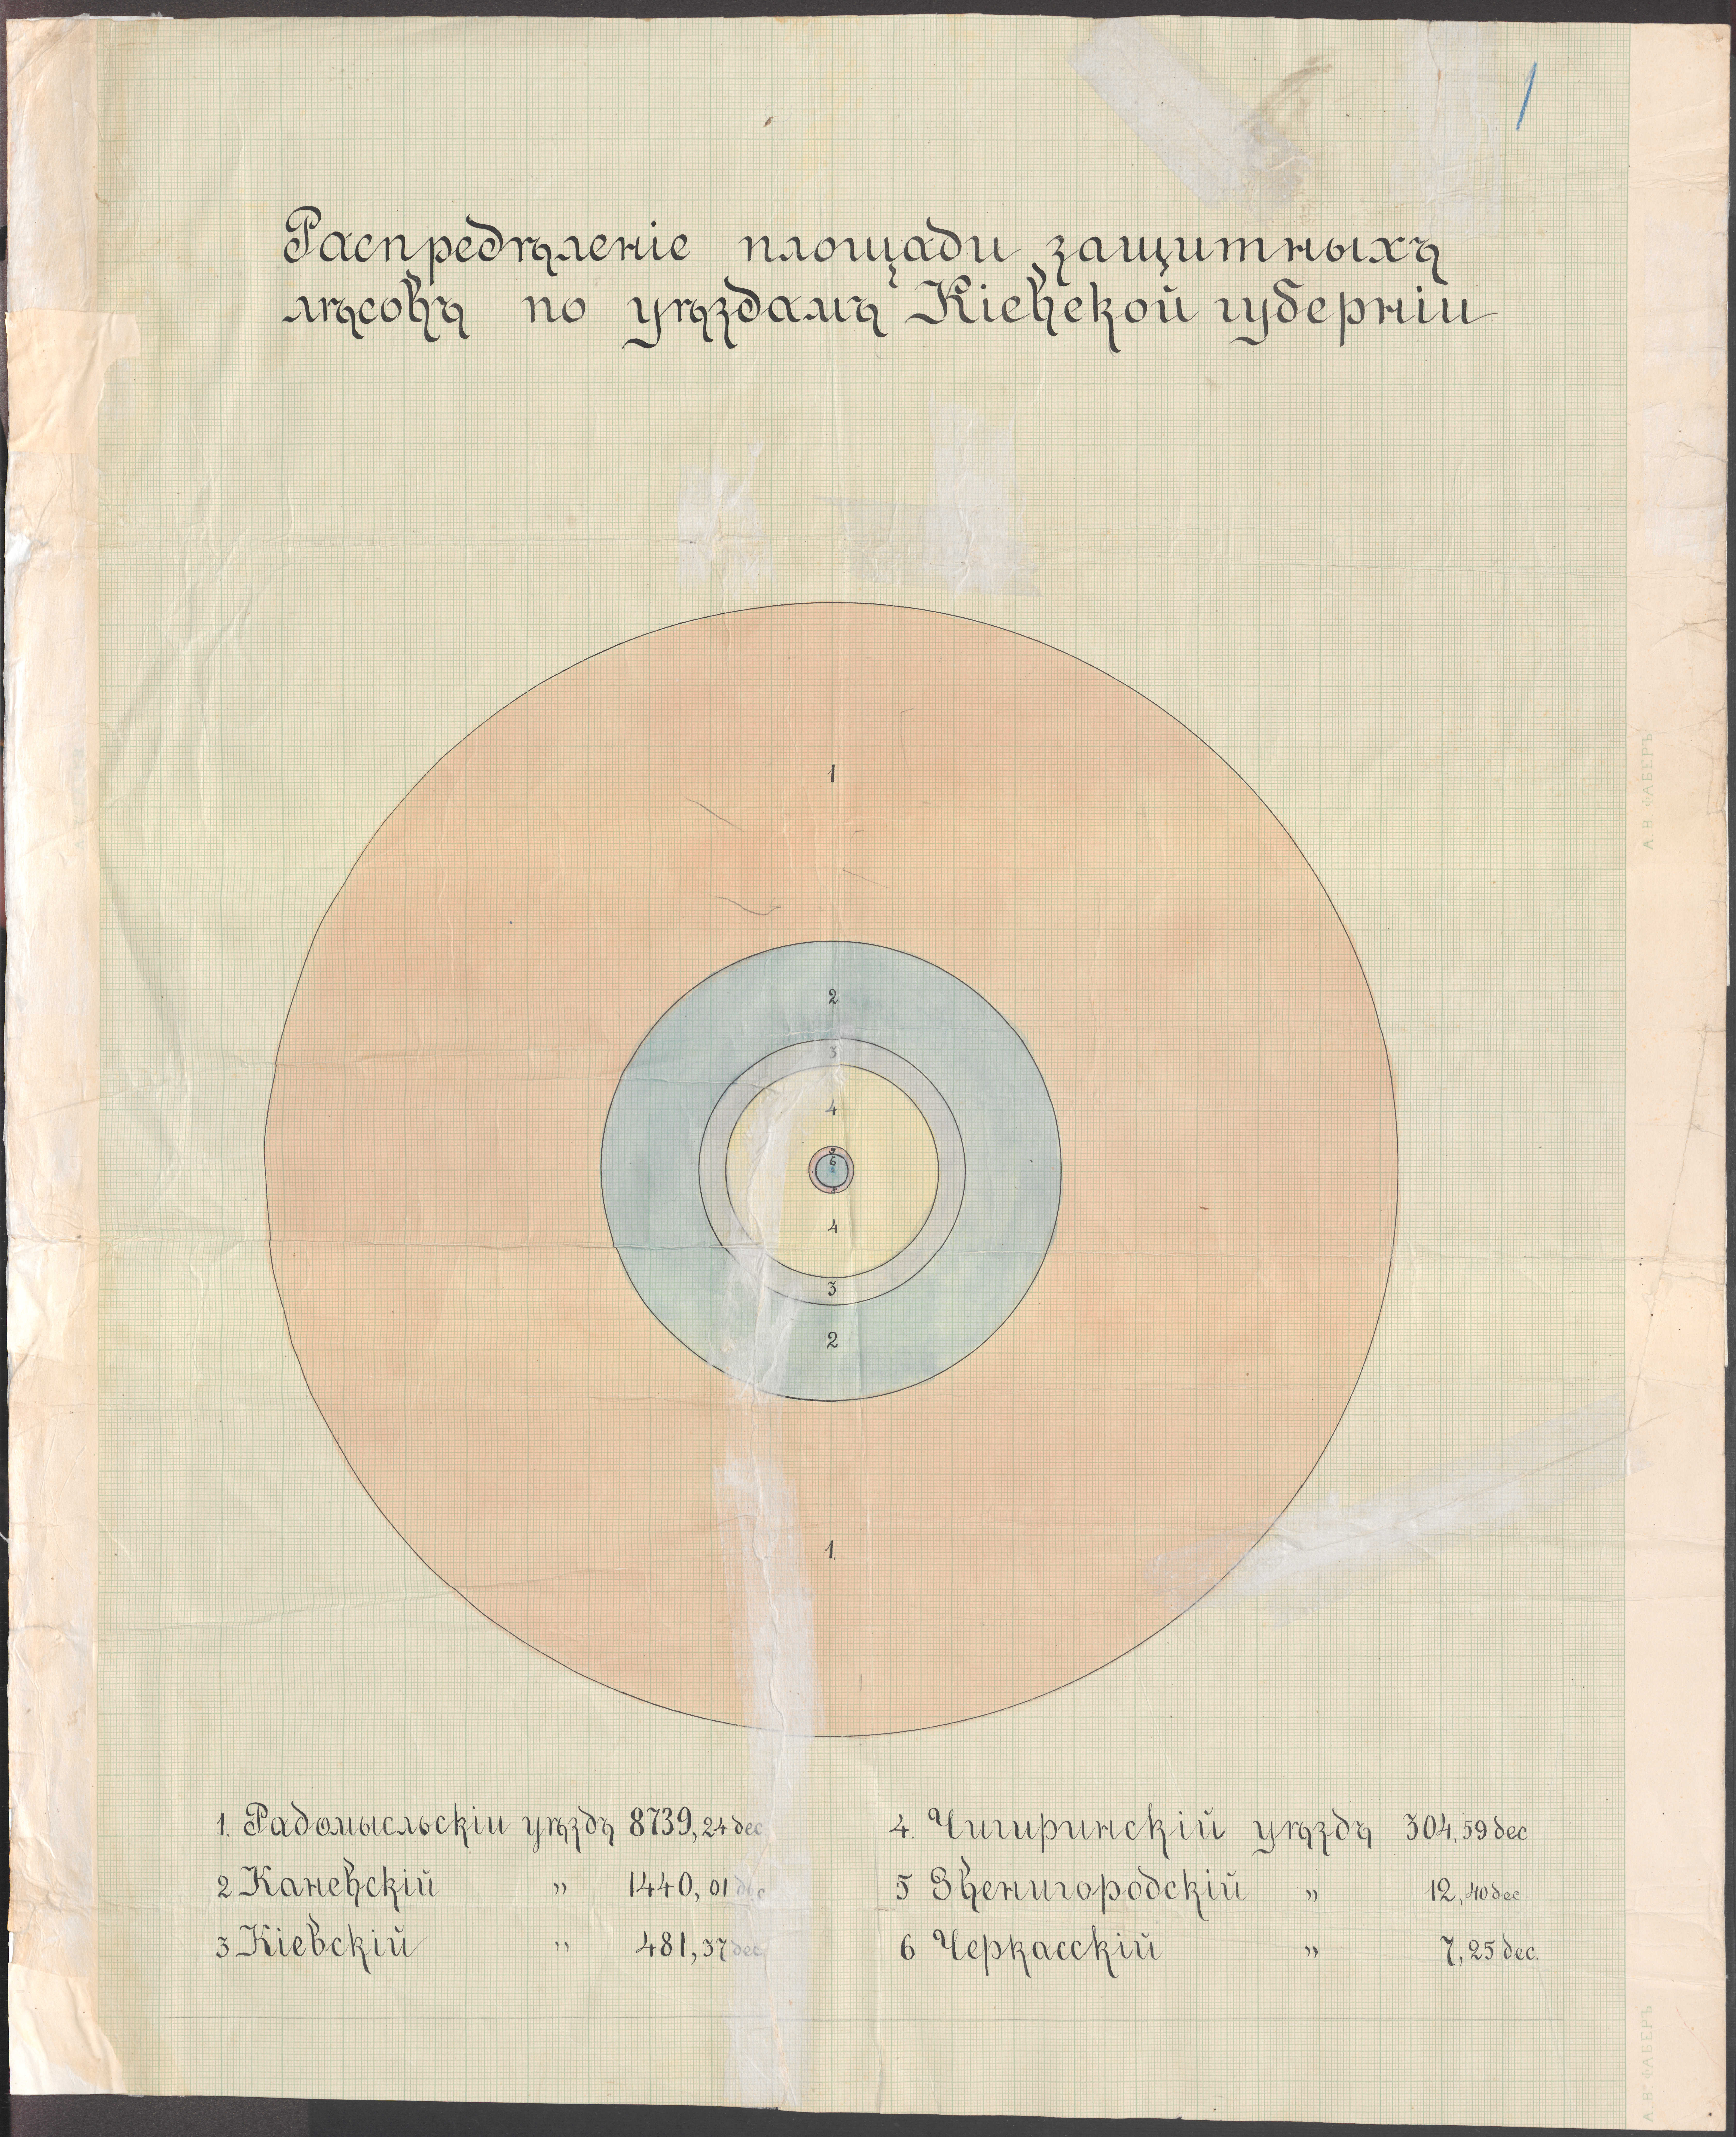 1
Распредѣленіе площади защитныхъ
лѣсовъ по уѣздамъ Кіевской губерніи
1
2
3
4
5
6
4
3
2
1.
1. Радомысльскіи уѣздъ 8739,24 дес
2 Каневскій „ 1440,01 дес
3 Кіевскій „ 481,37 дес
4. Чигиринскій уѣздъ 304,59 дес
5 Звенигородскій „ 12,40 дес.
6 Черкасскій „ 7,25 дес.
А. В. ФАБЕРЪ
А. В. ФАБЕРЪ